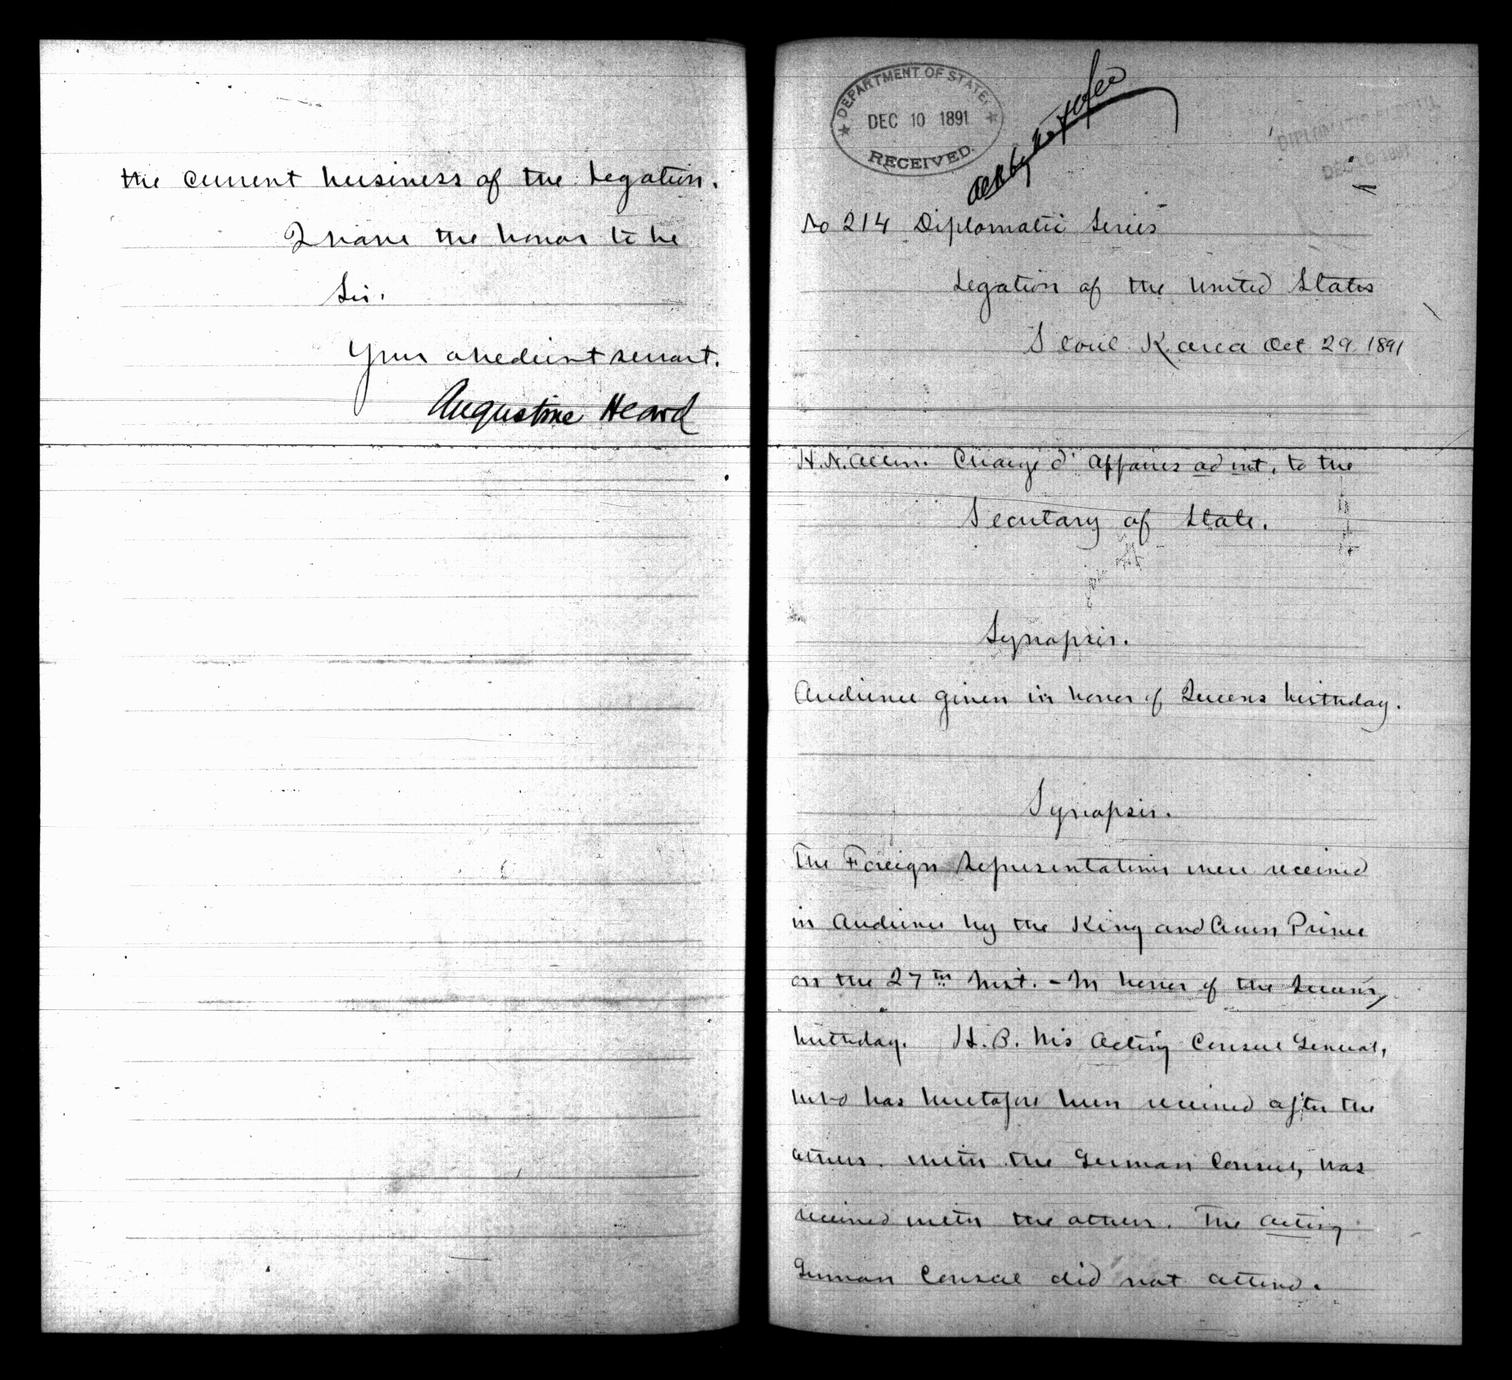 the current business of the Legation.
I have the honor to be
Sir.
Your obedient servant.
Augustine Heard
DEPARTMENT OF STATE,
DEC 10 1891
RECEIVED.
DIPLOMATIC BUREAU
DEC 10 1891
No 214 Diplomatic Series
Legation of the United States
Seoul Korea Oct 29. 1891
H. N. Allen. Charge d' Affaires ad int. to the
Secretary of State.
Synopsis.
Audience given in honor of Queens birthday.
Synopsis.
The Foreign Representatives were received
in Audience by the King and Crown Prince
on the 27th Inst. - In honor of the Queens,
birthday. H. B. M's Acting Consul General,
who has heretofore been received after the
others. with the German Consul, was
received with the others. The acting
German Consul did not attend.